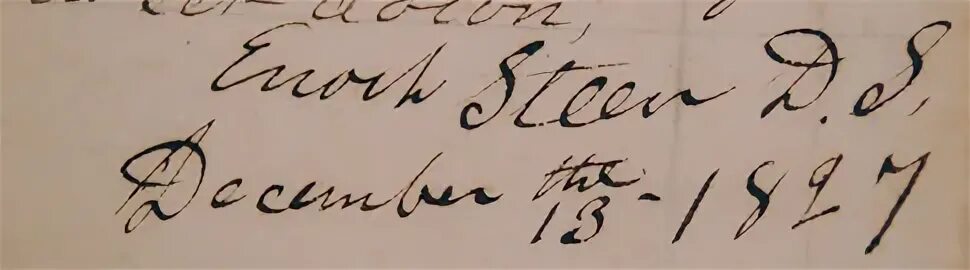 Enoch Steen D. S.
December the 13 - 1827